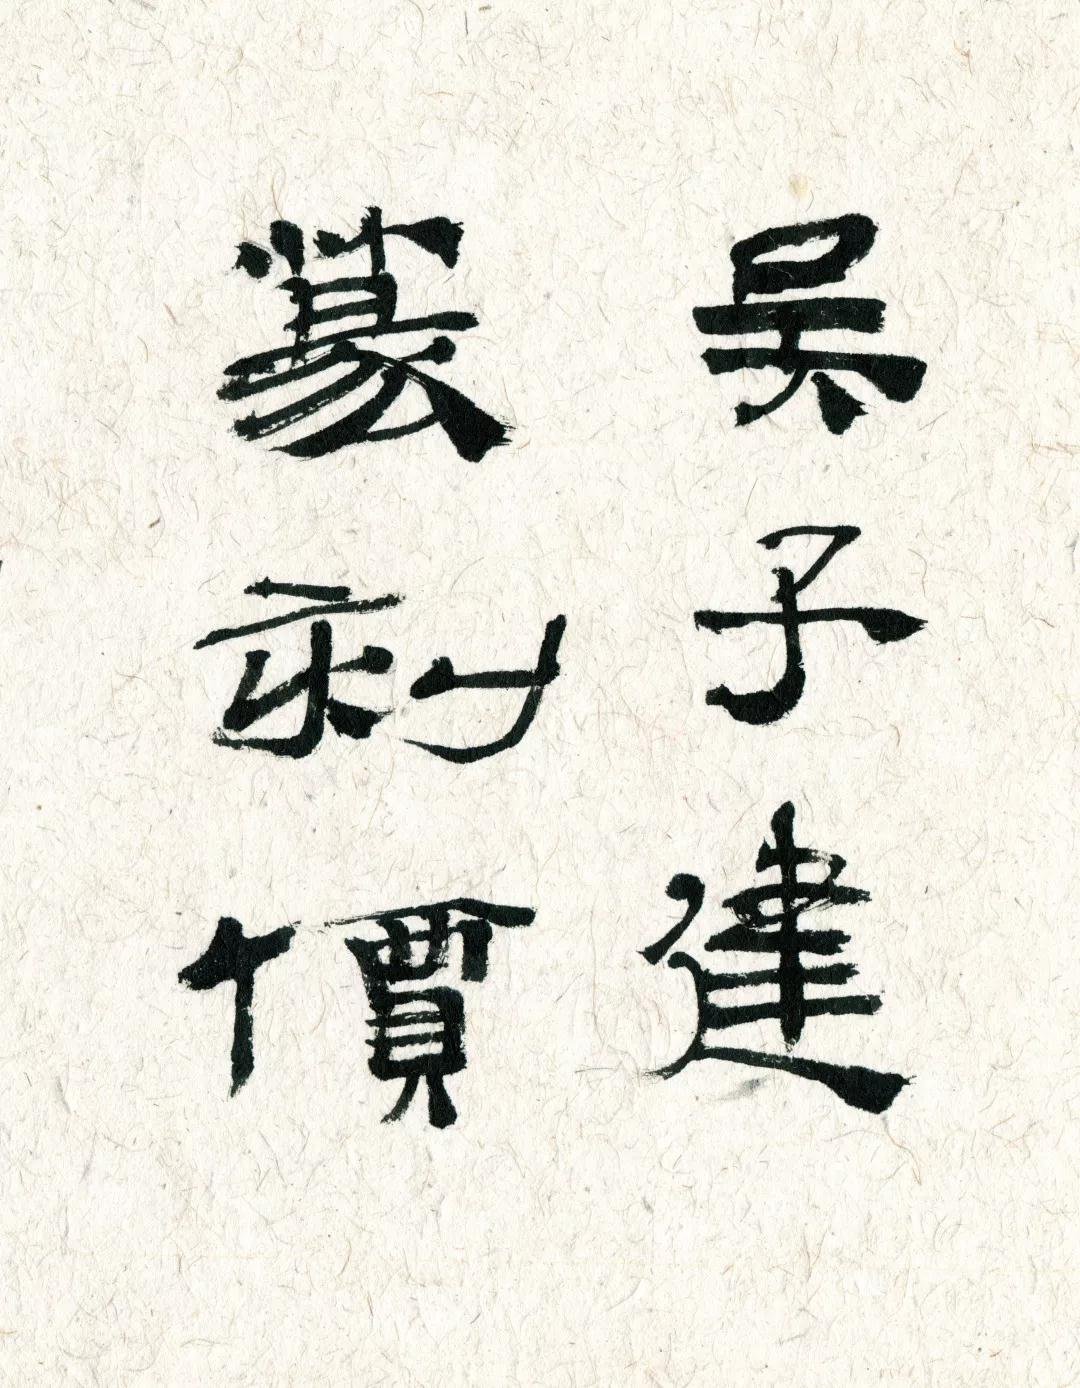 吴子建
篆刻價